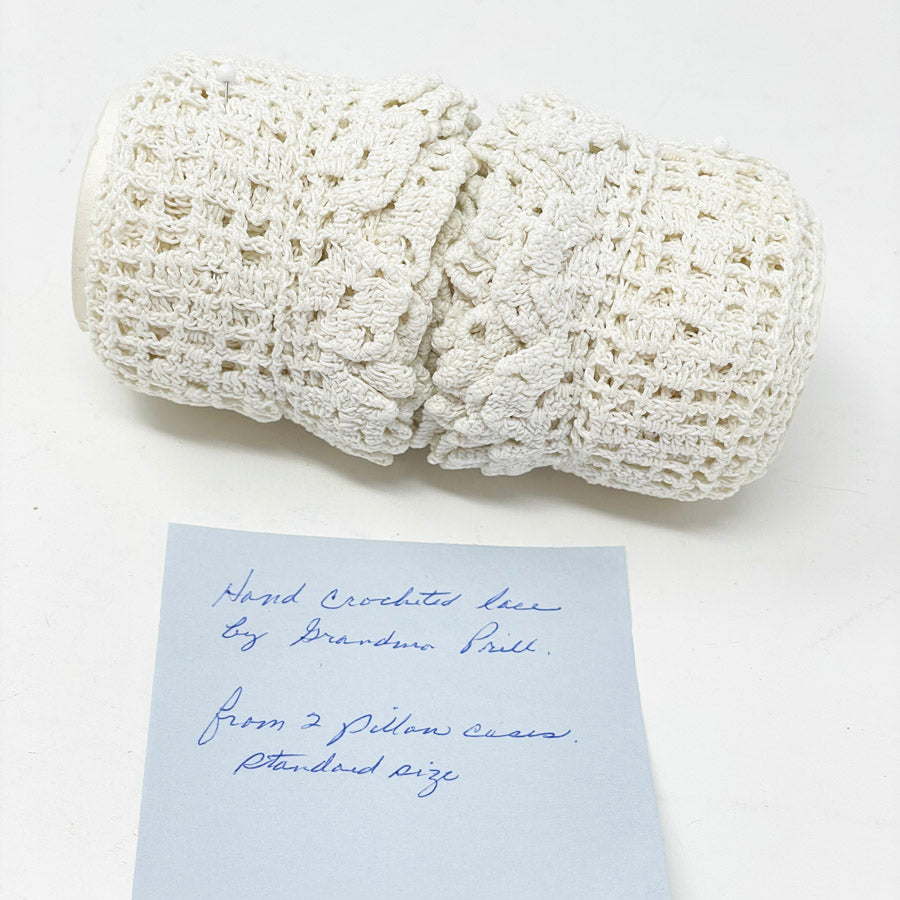 Hand crocheted lace
by Grandma Prill.
from 2 pillow cases.
standard size